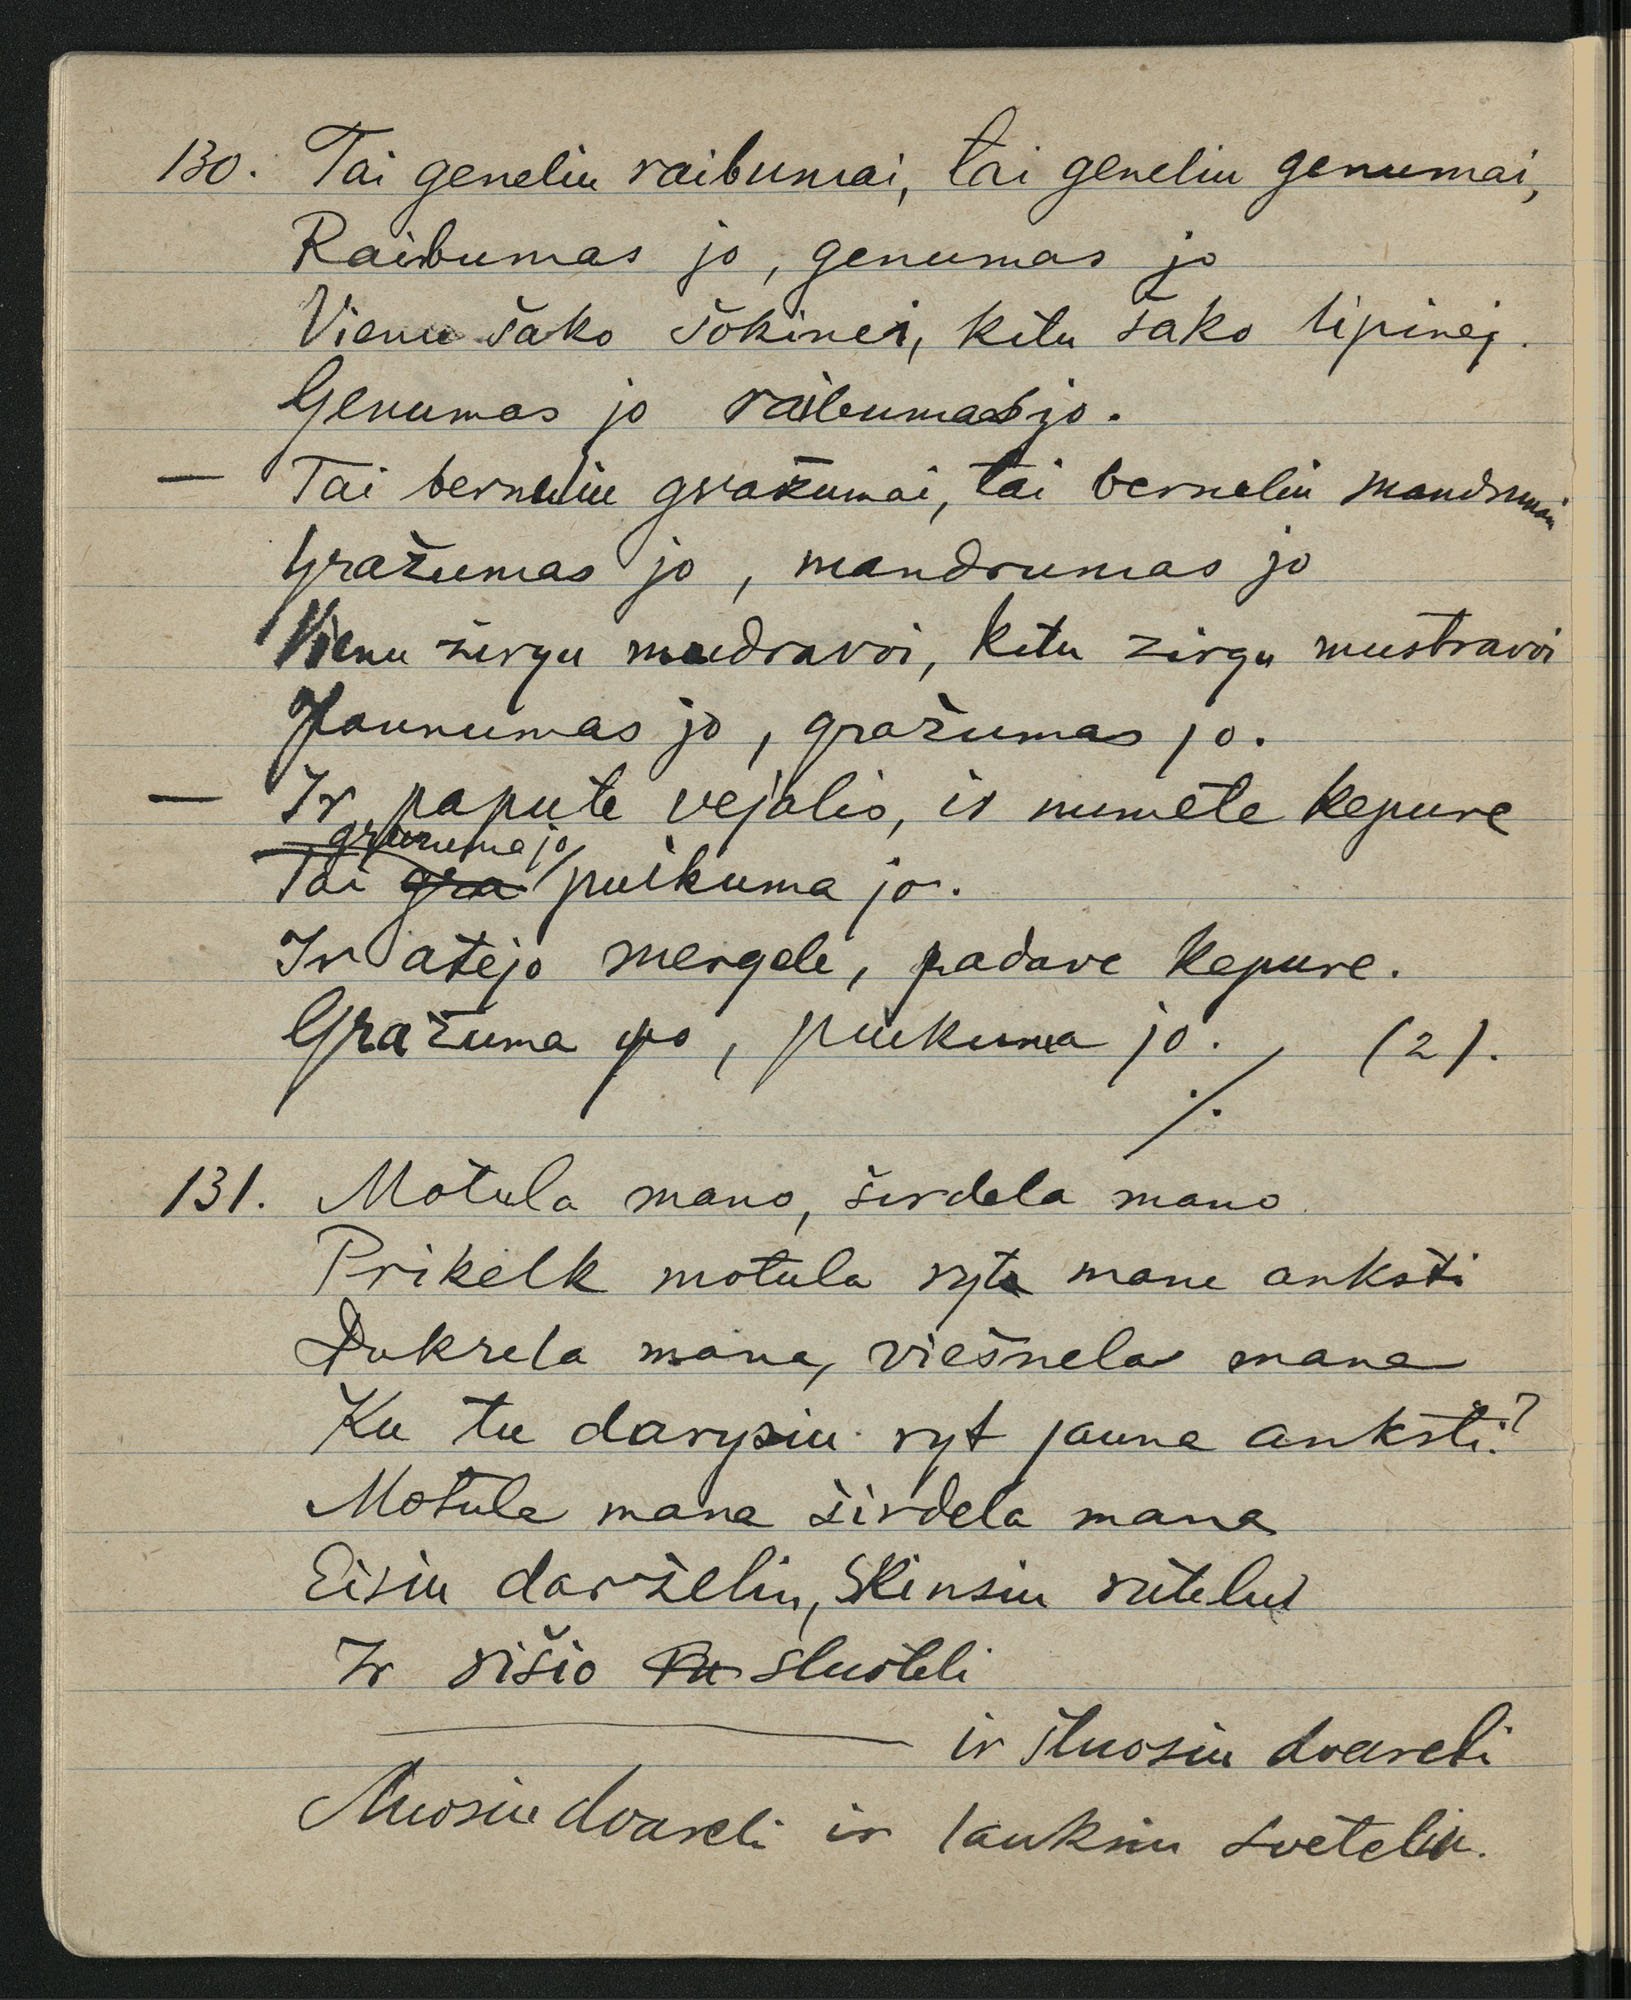 130. Tai geneliu raibumai, tai geneliu genumai,
Raibumas jo, genumas jo
Vienu šako šokinei, kitu šako lipinej.
Genumas jo raibumas jo.
— Tai berneliu gražumai, tai berneliu mandrumai
Gražumas jo, mandrumas jo
Vienu žirgu mudravoi, kitu žirgu mustravoi
Jaunumas jo, gražumas jo.
— Ir papute vejalis, ir numete kepure
gražuma jo
Tai gra puikuma jo.
Ir atejo mergele, padave kepure.
Gražuma jo, puikuma jo. (2).
./.
131. Motula mano, širdela mano
Prikelk motula ryta mane anksti
Dukrela mana, viešnela mana
Ku tu darysiu ryt jauna anksti?
Motula mana širdela mana
Eisiu darželiu, skinsiu rutelus
Ir rišio šluoteli
ir šluosiu dvareli
šluosiu dvareli ir lauksiu sveteliu.